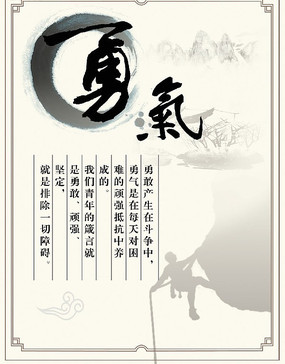 勇氣
勇敢产生在斗争中，
勇气是在每天对困
难的顽强抵抗中养
成的。
我们青年的箴言就
是勇敢、顽强、
坚定，
就是排除一切障碍。